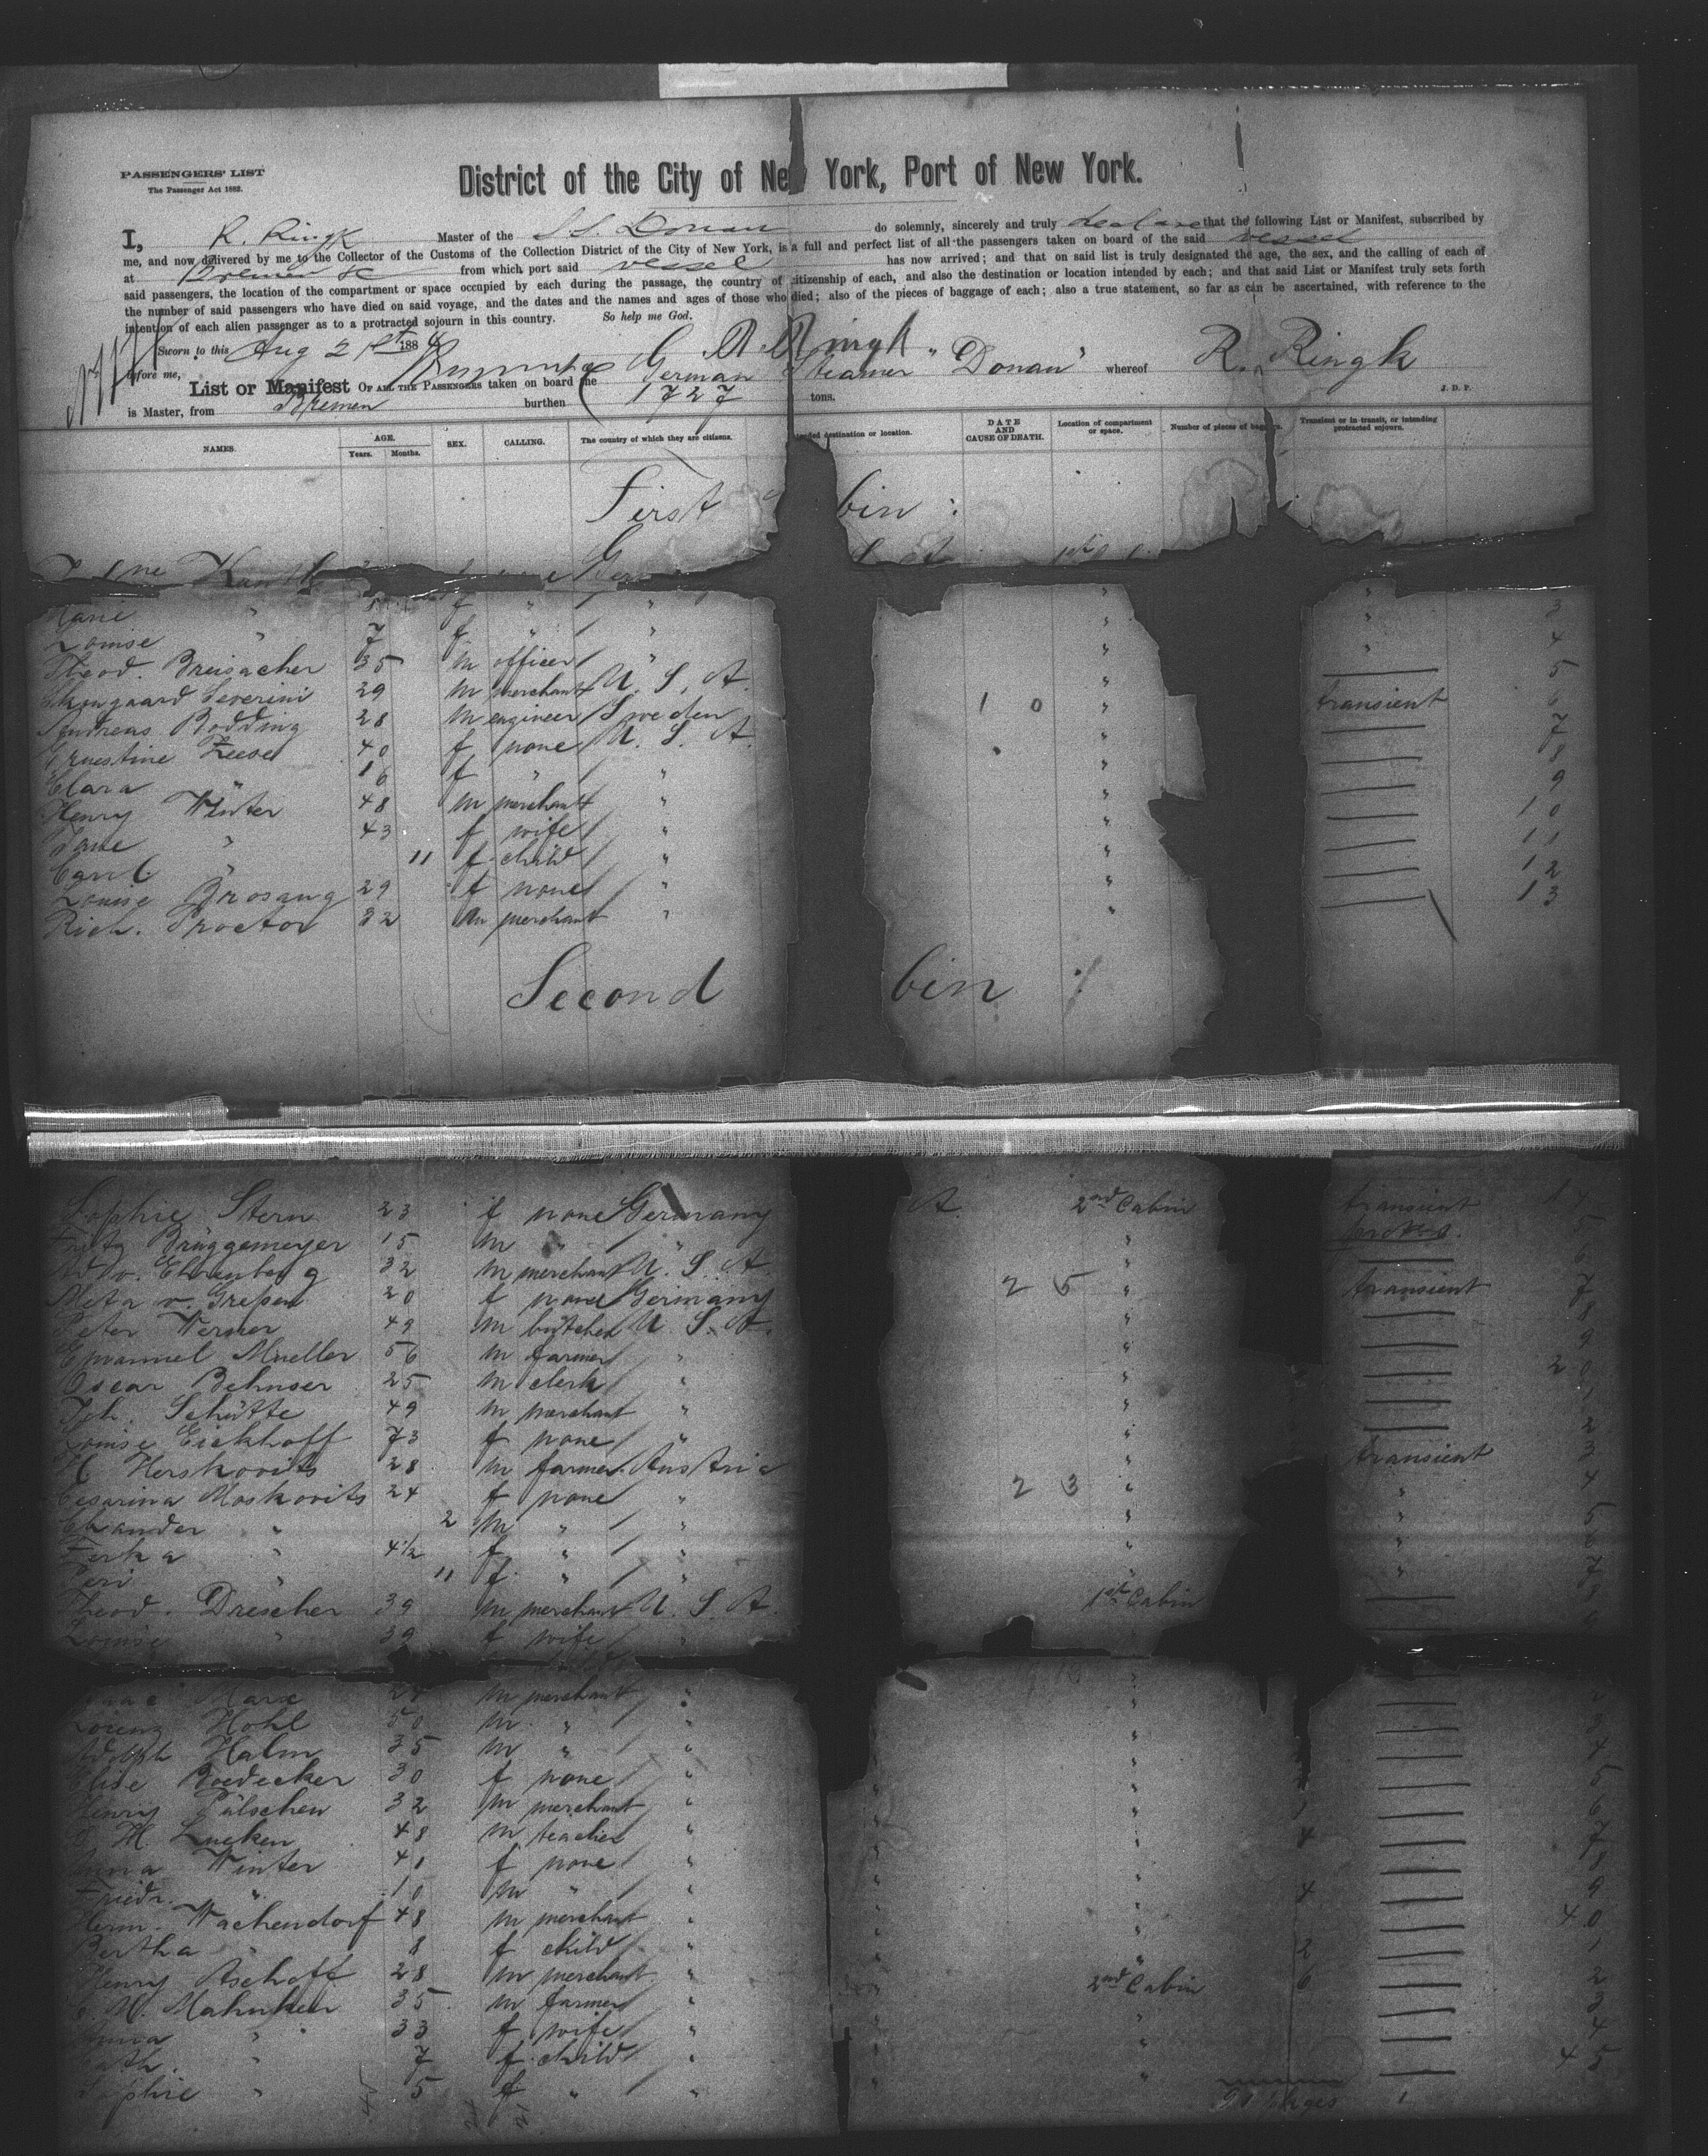 PASSENGERS' LIST
The Passenger Act 1882.
District of the City of New York, Port of New York.
I, R. Ringk Master of the S.S. Donau do solemnly, sincerely and truly declare that the following List or Manifest, subscribed by
me, and now delivered by me to the Collector of the Customs of the Collection District of the City of New York, is a full and perfect list of all the passengers taken on board of the said vessel
at Bremen from which port said vessel has now arrived; and that on said list is truly designated the age, the sex, and the calling of each of
said passengers, the location of the compartment or space occupied by each during the passage, the country of citizenship of each, and also the destination or location intended by each; and that said List or Manifest truly sets forth
the number of said passengers who have died on said voyage, and the dates and the names and ages of those who died; also of the pieces of baggage of each; also a true statement, so far as can be ascertained, with reference to the
intention of each alien passenger as to a protracted sojourn in this country. So help me God.
Sworn to this Aug 21st 1884 R. Ringk
before me,
List or Manifest OF ALL THE PASSENGERS taken on board the German Steamer "Donau" whereof R. Ringk
is Master, from Bremen burthen 1727 tons. J. D. P.
NAMES. AGE. Years. Months. SEX. CALLING. The country of which they are citizens. destination or location. DATE AND CAUSE OF DEATH. Location of compartment or space. Number of pieces of Transient or in transit, or intending protracted sojourn.
First bin :
Marie " f " / " " " 3
Louise " 7 f " / " " " 4
Theod. Breisacher 35 m officer / " " 5
Severini 29 m merchant U. S. A. " transient 6
Andreas Bodding 28 m engineer / Sweden 1 0 " 7
Ernestine Zeese 40 f none U. S. A. " 8
Clara " 16 f " / " " 9
Henry Winter 48 m merchant " " 10
Jane " 43 f wife / " " 11
Carl " 11 f child / " " 12
Louise Brosang 29 f none / " " 13
Rich. Proctor 32 m merchant " "
Second bin :/
Sophie Stern 23 f none Germany A. 2nd Cabin transient 14
Fritz Brüggemeyer 15 m " / " " 5
Ehrenberg 32 m merchant U. S. A. " 6
Meta v. Grefsen 20 f none Germany 2 5 " transient 7
Peter Werner 49 m butcher U. S. A. " 8
Emanuel Mueller 56 m farmer " " 9
Oscar Behnser 25 m clerk / " " 20
Joh. Schütte 49 m merchant " " 1
Louise Eickhoff 73 f none / " " 2
Herskovits 28 m farmer Austria " transient 3
Cesarina Moskovits 24 f none / " 2 3 " " 4
" 2 m " / " " " 5
" 4 1/2 f " / " " " 6
" 11 f " / " " " 7
Theod. Drescher 39 m merchant U. S. A. 1st Cabin 8
Louise " 39 f wife / " 9
Marx m merchant " "
Lorenz Hohl 50 m " / " " 3
Adolph Halm 35 m " / " " 4
Elise Boedecker 30 f none / " " 5
Henry Pülschen 32 m merchant " " 1 6
H. Luerken 48 m teacher " " 4 7
Anna Winter 41 f none / " " 8
Friedr. " 10 m " / " " 4 9
Herm. Wachendorf 48 m merchant " " 40
Bertha " 8 f child / " " 2 1
Henry Aschoff 28 m merchant " 2nd Cabin 6 2
Mahnken 35 m farmer " " 3
Anna " 33 f wife / " " 4
Cath. " 7 f child / " " 45
Sophie " 5 f " / " "